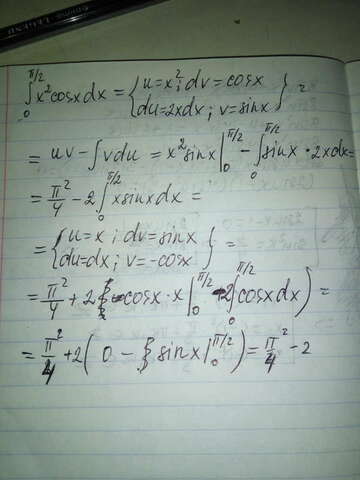 ∫₀^{π/2} x² cosx dx = { u = x²; dv = cosx
du = 2xdx; v = sinx } =
= uv - ∫vdu = x² sinx |₀^{π/2} - ∫₀^{π/2} sinx · 2xdx =
= π²/4 - 2∫₀^{π/2} x sinx dx =
= { u = x; dv = sinx
du = dx; v = -cosx } =
= π²/4 + 2 -cosx · x |₀^{π/2} 2∫₀^{π/2} cosx dx) =
= π²/4 + 2( 0 - sinx |₀^{π/2} ) = π²/4 - 2